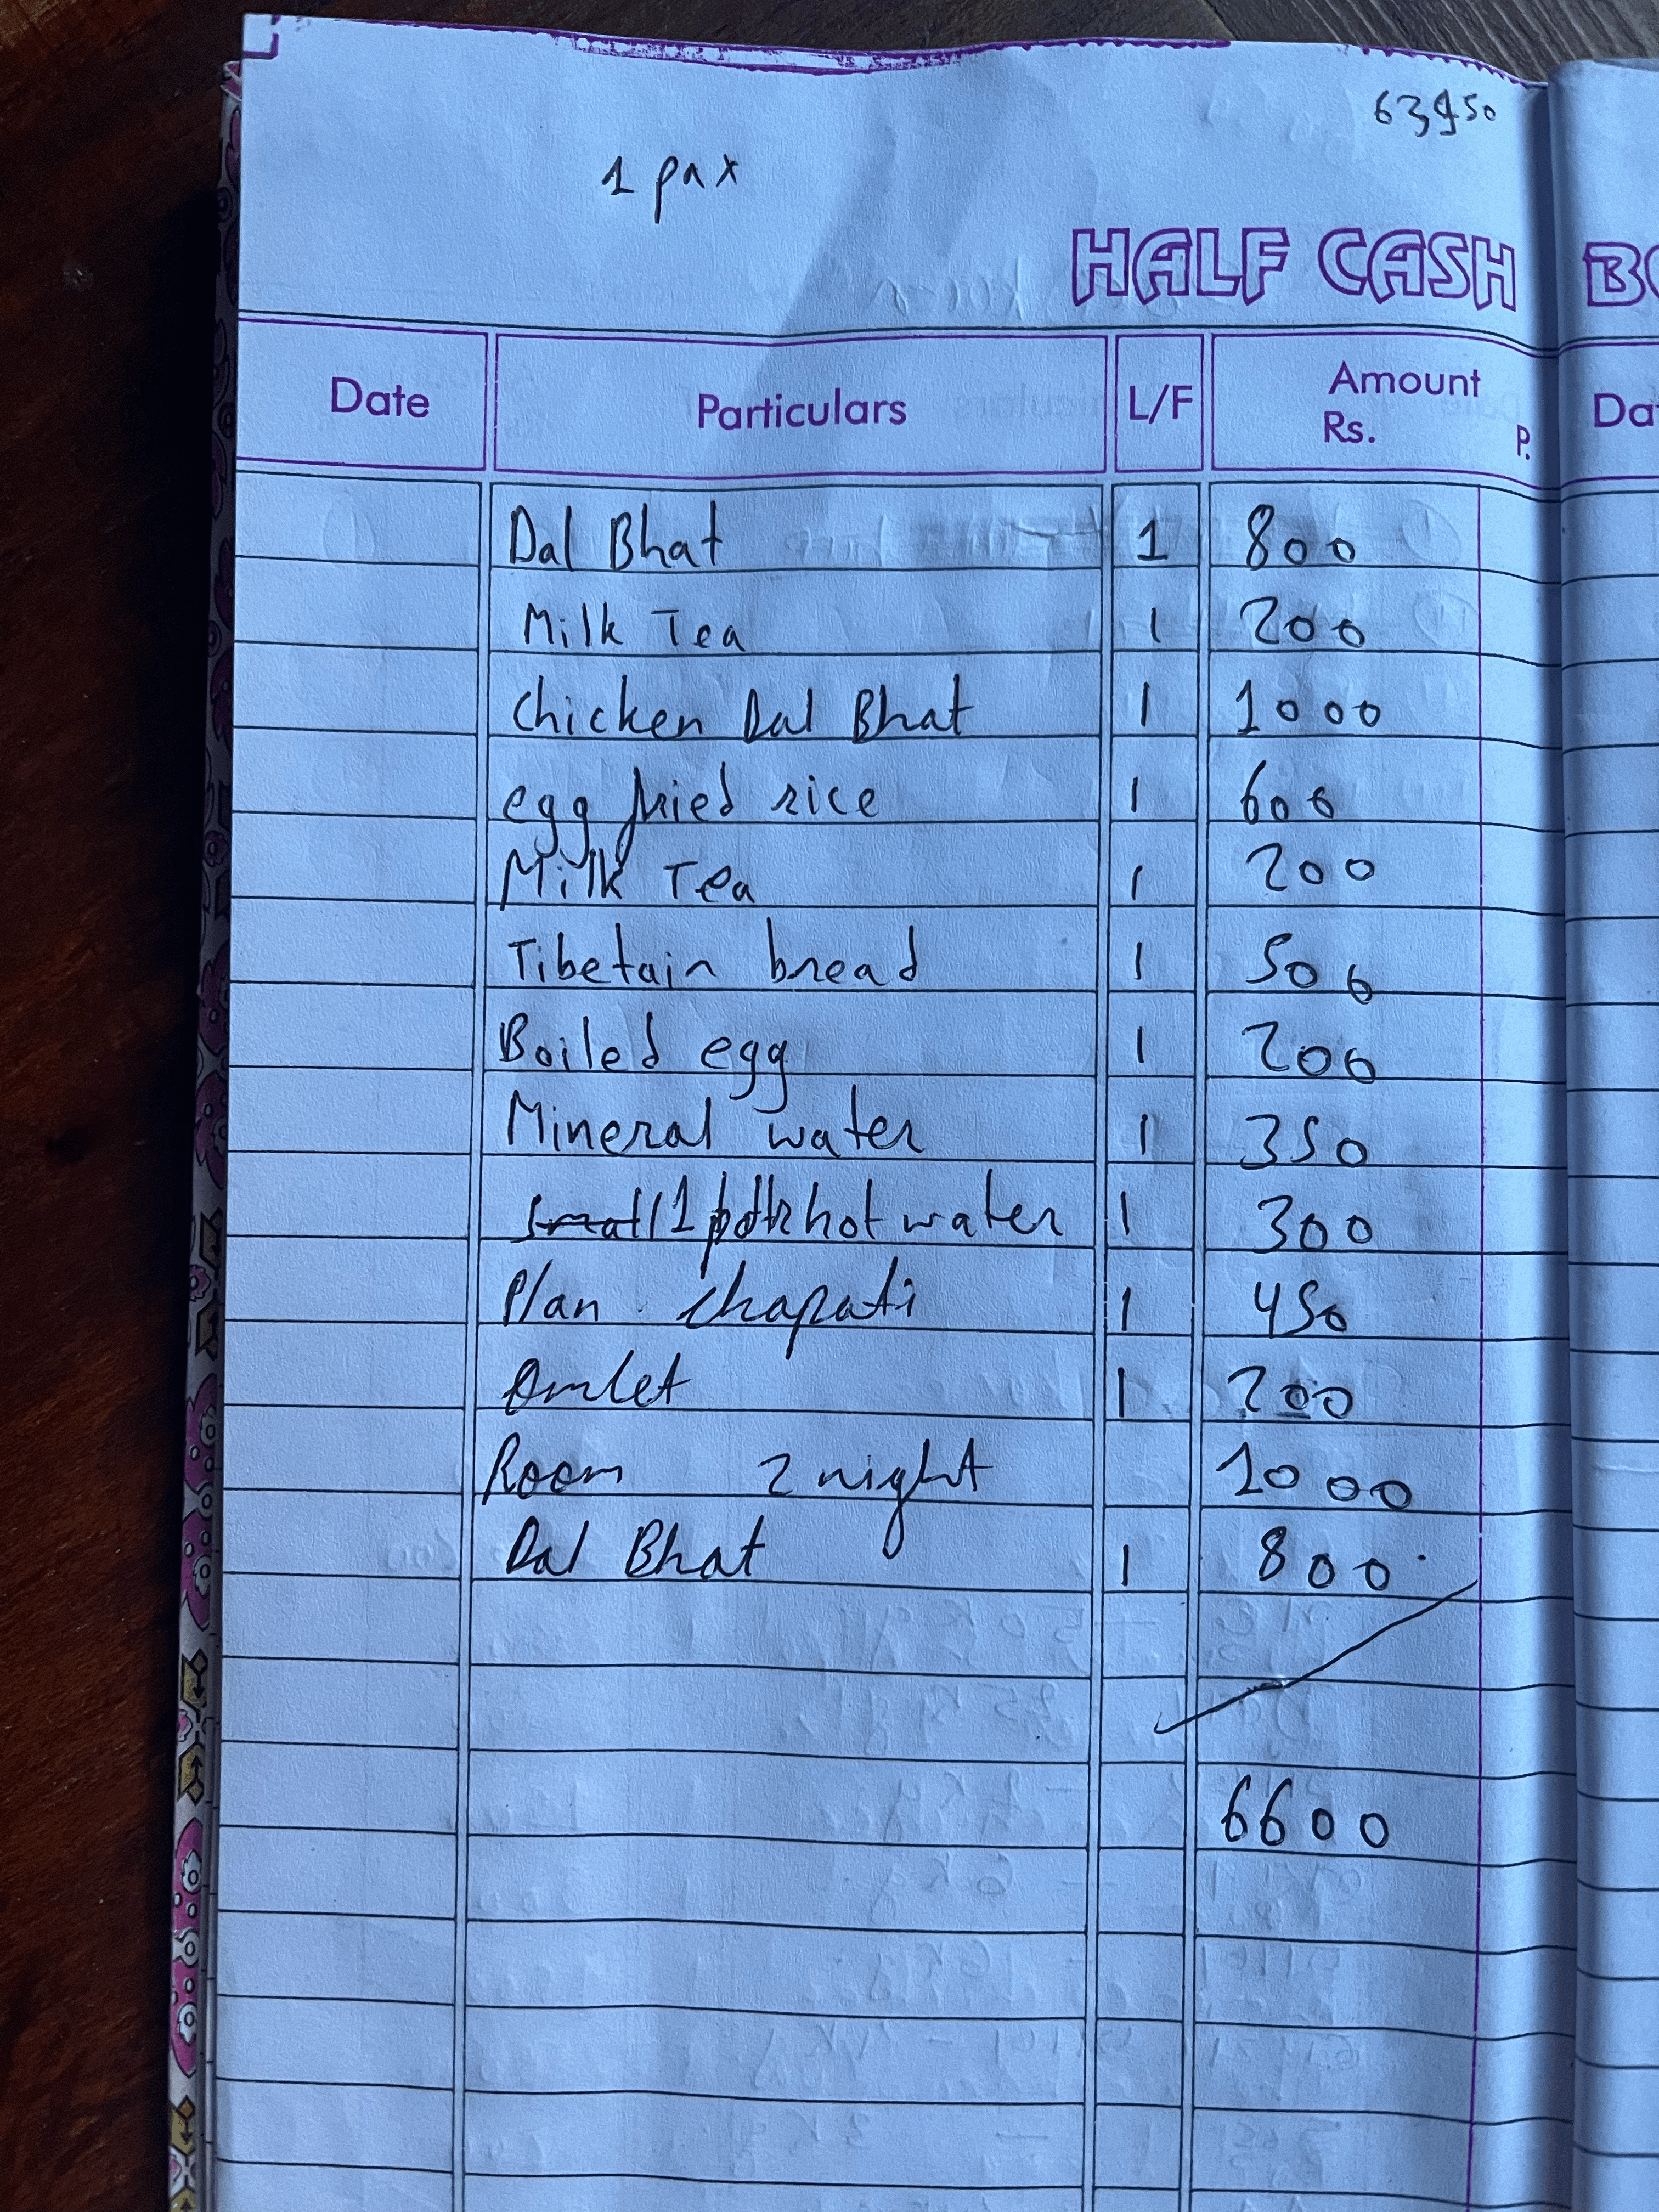 63950
1 pax
HALF CASH
Date Particulars L/F Amount Rs. P.
Dal Bhat 1 800
Milk Tea 1 200
Chicken Dal Bhat 1 1000
egg fried rice 1 600
Milk Tea 1 200
Tibetain bread 1 500
Boiled egg 1 200
Mineral water 1 350
1 hot water 1 300
Plan chapati 1 450
Omlet 1 200
Room 2 night 1000
Dal Bhat 1 800
6600